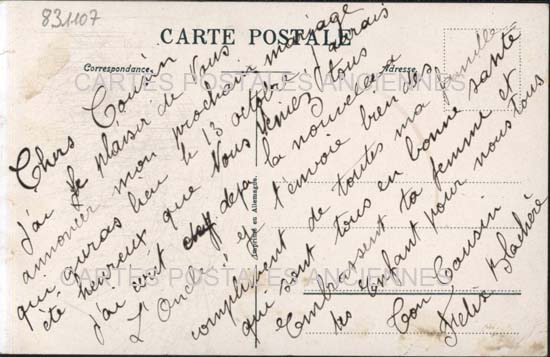 831107
CARTE POSTALE
Correspondance
Adresse
CARTES POSTALES ANCIENNES
CARTES POSTALES ANCIENNES
Imprimé en Allemagne.
Chers Cousin
J'ai le plaisir de Vous
annoncer mon prochain mariage
qui auras lieu le 13 octobre, J'aurais
été heureux que Vous Veniez tous
J'ai écrit deja la nouvelle a
L'Oncle, Je t'envoie bien des
compliment de toutes ma famille
qui sont tous en bonne santé
Embrassent ta femme et
tes Enfant pour nous tous
Ton Cousin
Felix Blachère